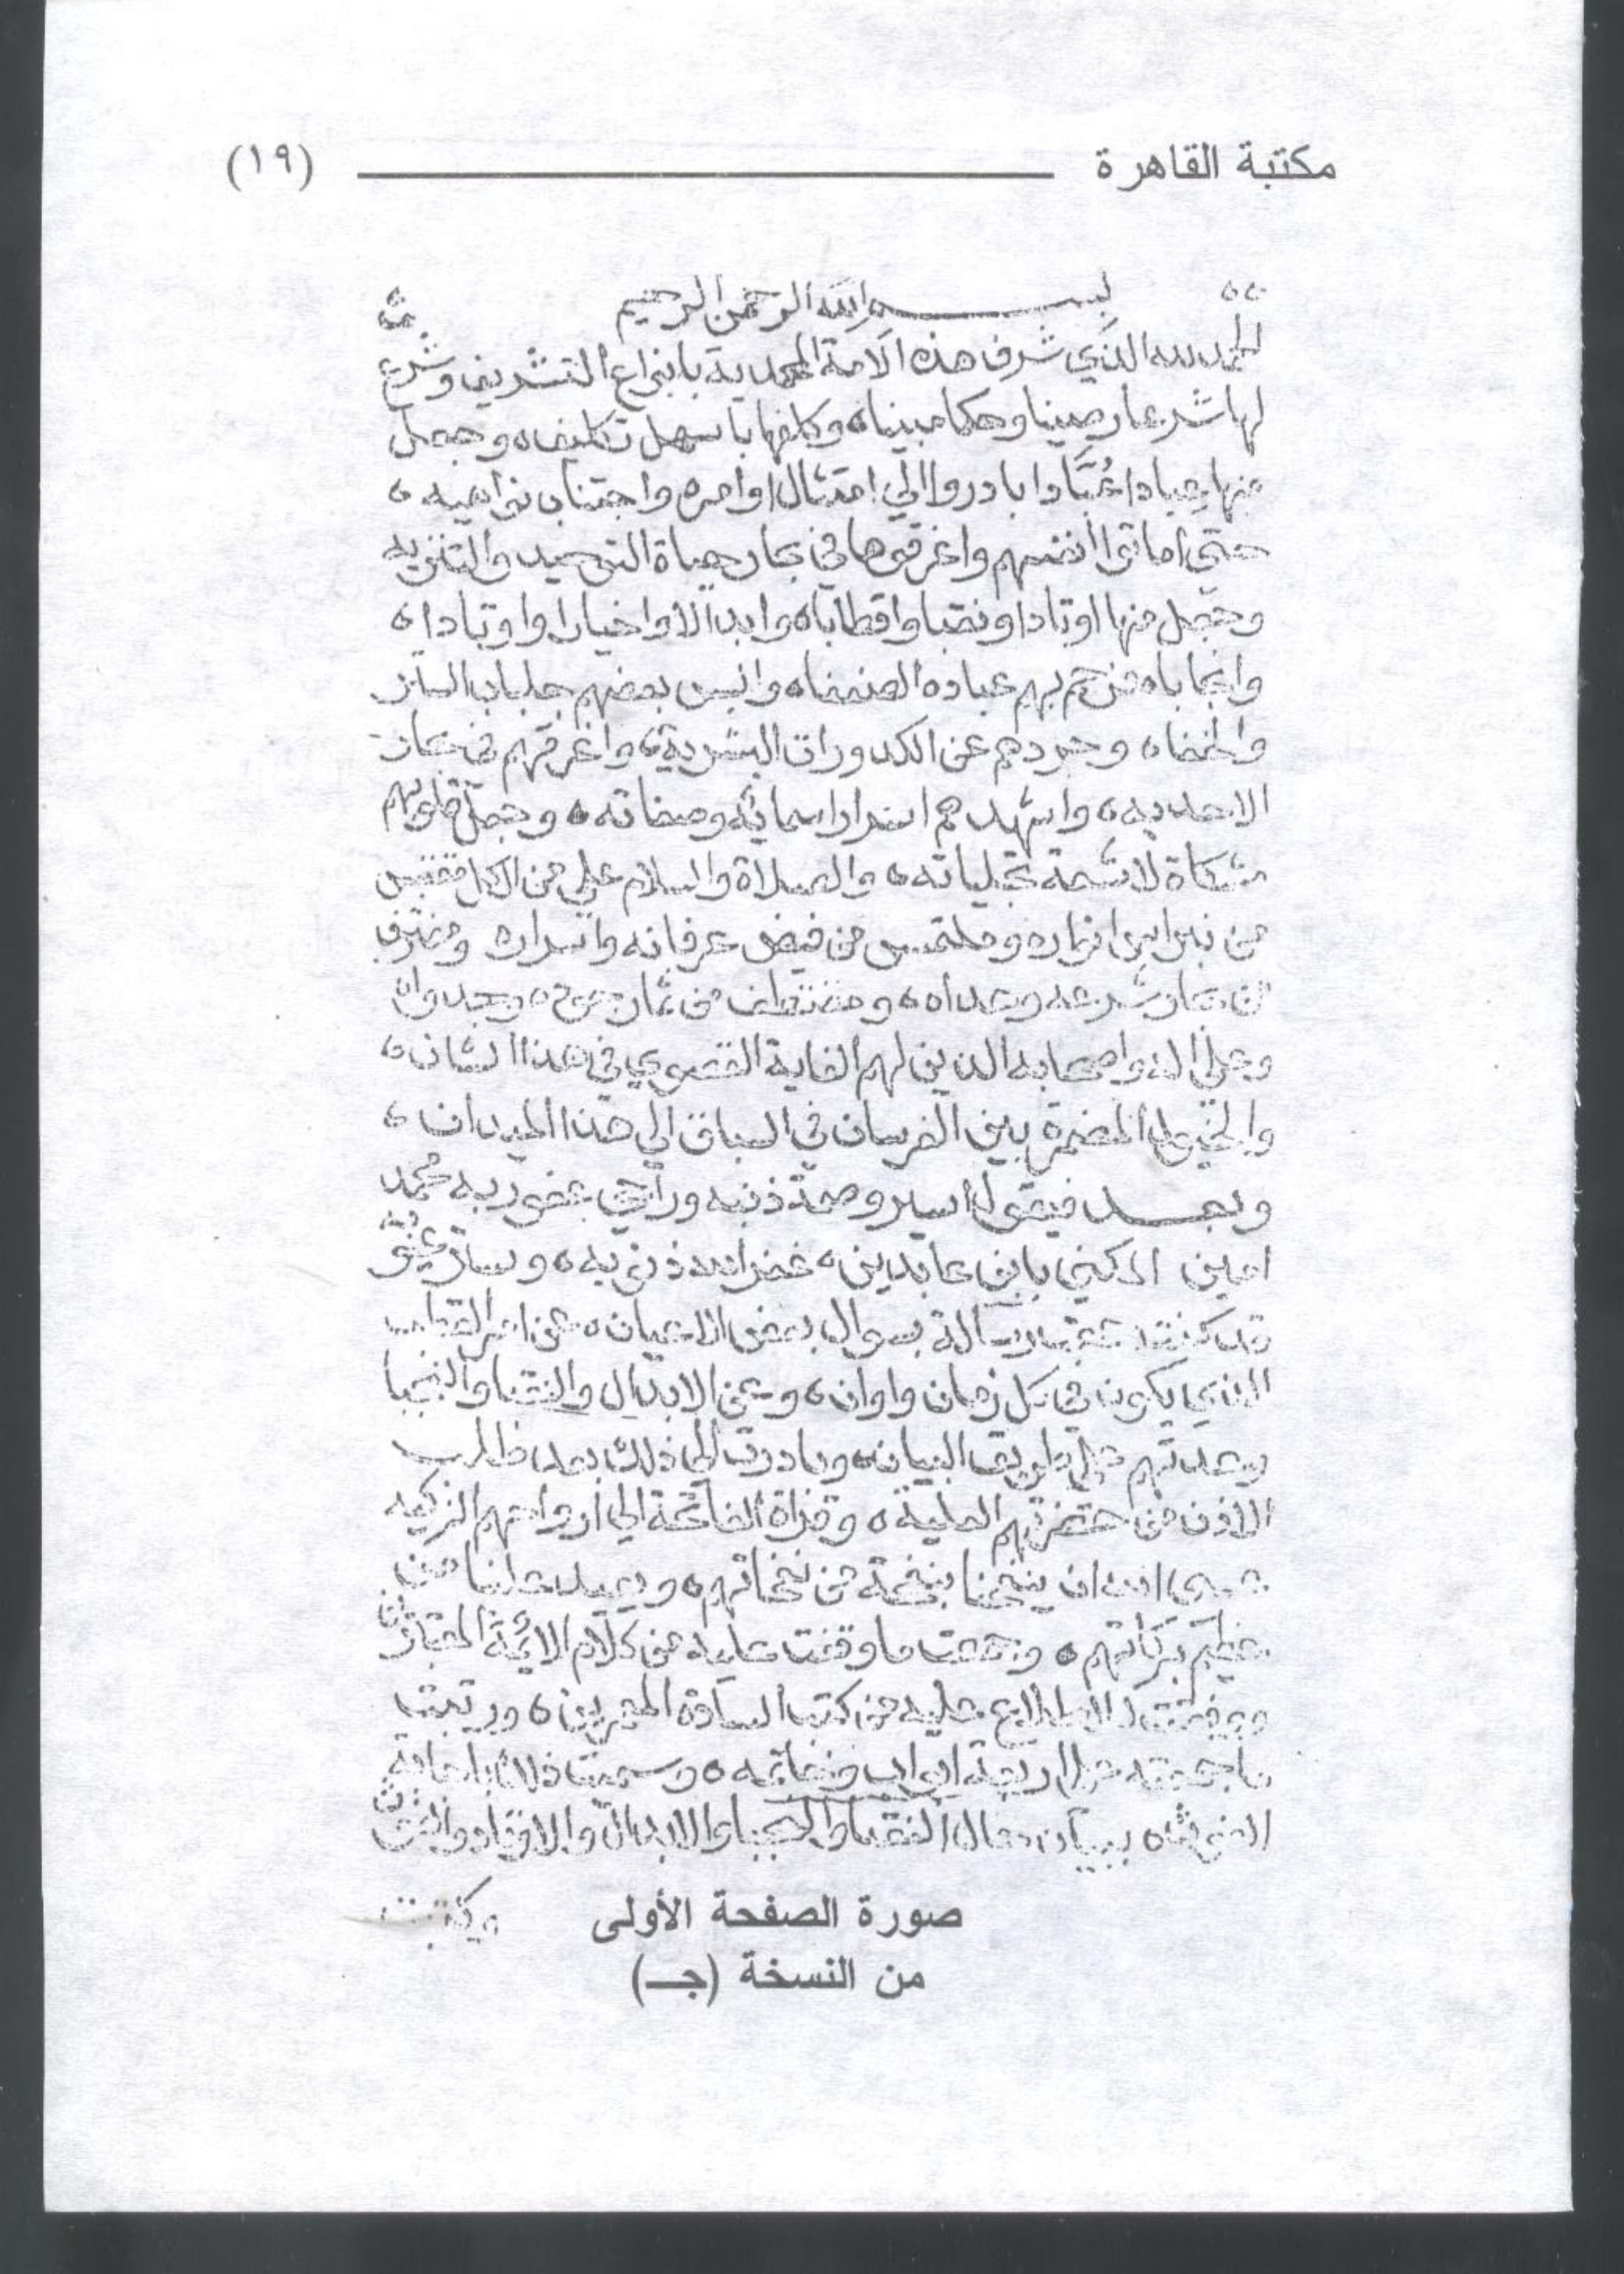 مكتبة القاهرة (١٩)
بسم الله الرحمن الرحيم
الحمد لله الذي شرف هذه الامة المحمدية بانواع التشريف وشرع
لها شرعا رصينا وحكما مبينا وكلفها باسهل تكليف وجعل
منها عبادا عُبَّادا بادروا الي امتثال اوامره واجتناب نواهيه
حتي اماتوا انفسهم واغرقوها في بحار حياة التوحيد والتنزيه
وجعل منها اوتادا ونقبا واقطابا وابدالا واخيارا واوتادا
وانجابا فرحم بهم عباده الضعفا والبس بعضهم جلباب الستر
والخفا وجردهم عن الكدورات البشرية واغرقهم في بحار
الاحديه واشهدهم اسرار اسمائه وصفاته وجعل قلوبهم
مشكاة لاشعة تجلياته والصلاة والسلام علي من الكل مقتبس
من نبراس انواره وملتمس من فيض عرفانه واسراره ومغترف
من بحار شرعه وهداه ومقتطف من ثمار
وعلى اله واصحابه الذين لهم الغاية القصوي في هذا الشان
والخيول المضمرة بين الفرسان في السباق الي هذا الميدان
وبعد فيقول اسير وصمة ذنبه وراجي عفو ربه محمد
امين المكني بابن عابدين غفر الله ذنوبه وستر عيوبه
قد كنت جمعت رسالة بسوال بعض الاعيان عن امر القطب
الذي يكون في كل زمان واوان وعن الابدال والنقبا والنجبا
وعدتهم علي طريق البيان وبادرت الي ذلك بعد طلب
الاذن من حضرتهم العلية وقراة الفاتحة الي ارواحهم الزكيه
عسى الله ان ينفحنا بنفحة من نفحاتهم ويعيد علينا من
عظيم بركاتهم وجمعت ما وقفت عليه من كلام الائمة المعتبرين
للاطلاع عليه من كتب السادة المعمرين ورتبت
ما جمعته على اربعة ابواب وخاتمه وسميت ذلك باجابة
الغوث ببيان حال النقبا والنجبا والابدال والاوتاد والغوث
وكنت
صورة الصفحة الأولى
من النسخة (جـ)